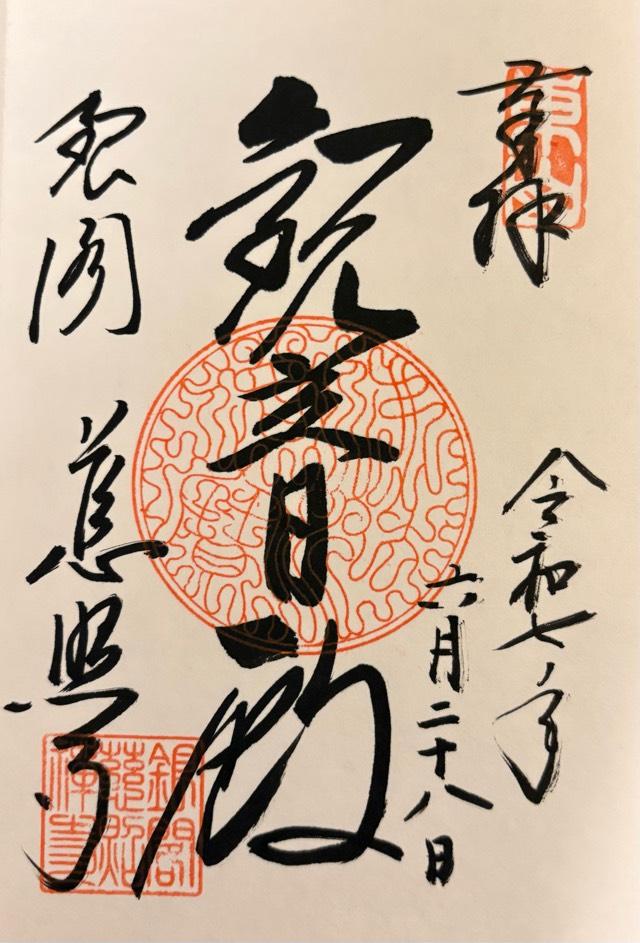 奉拝
令和七年
六月二十八日
観音殿
銀閣
慈照寺
銀閣
慈照
禅寺